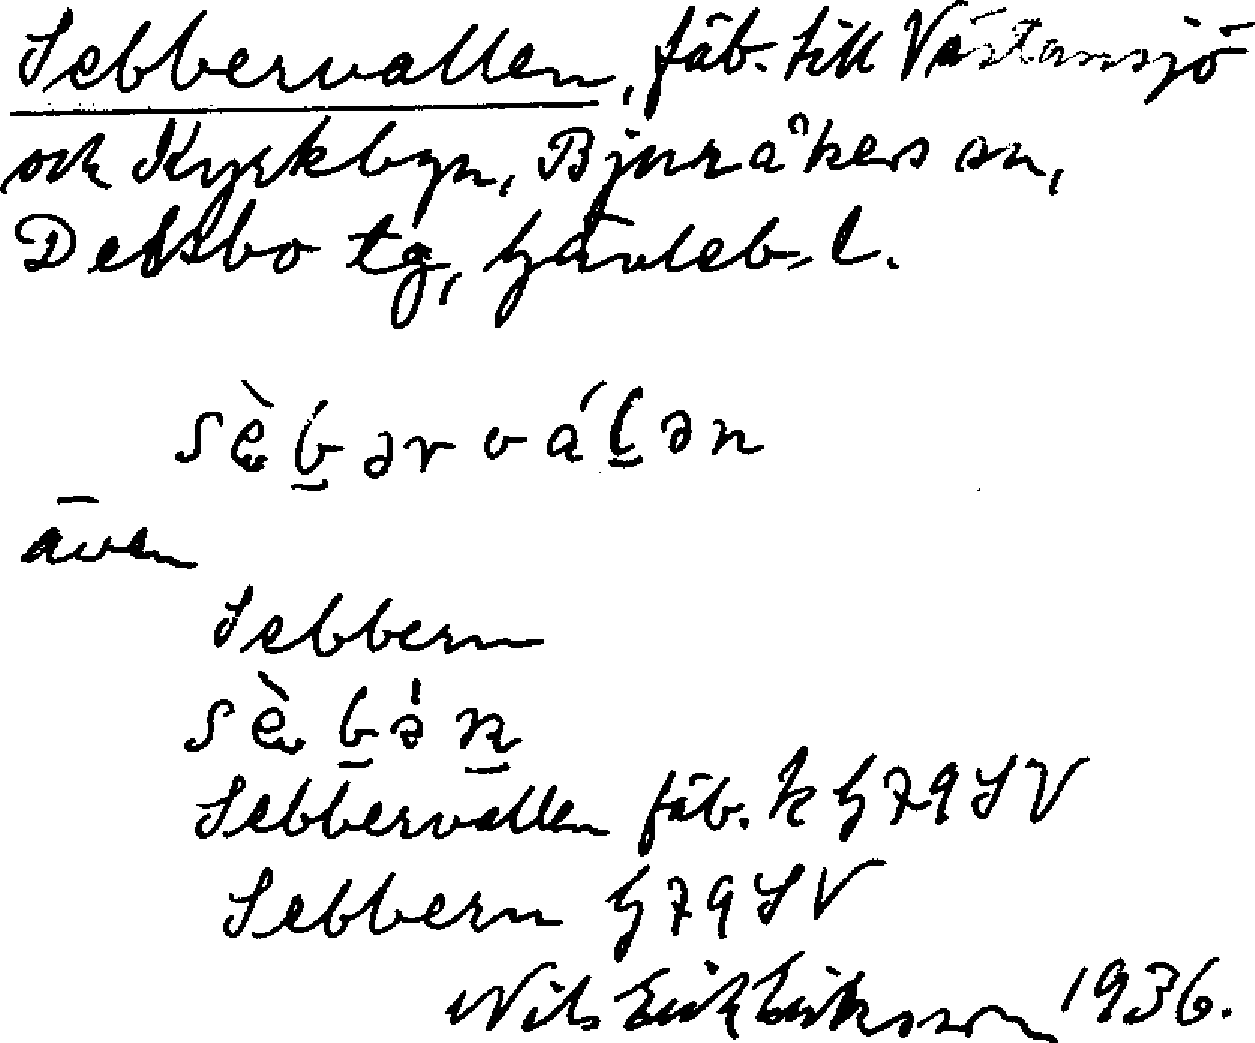 Sebbervallen, fäb. till Västansjö
och Kyrkbyn, Bjuråkers sn,
Delsbo tg, Gävleb. l.
sè̱b̲ərváḻən
även
Sebbern
sèb̲ə̍n̲
Sebbervallen fäb. k G79SV
Sebbern G79SV
Nils Erik Eriksson 1936.